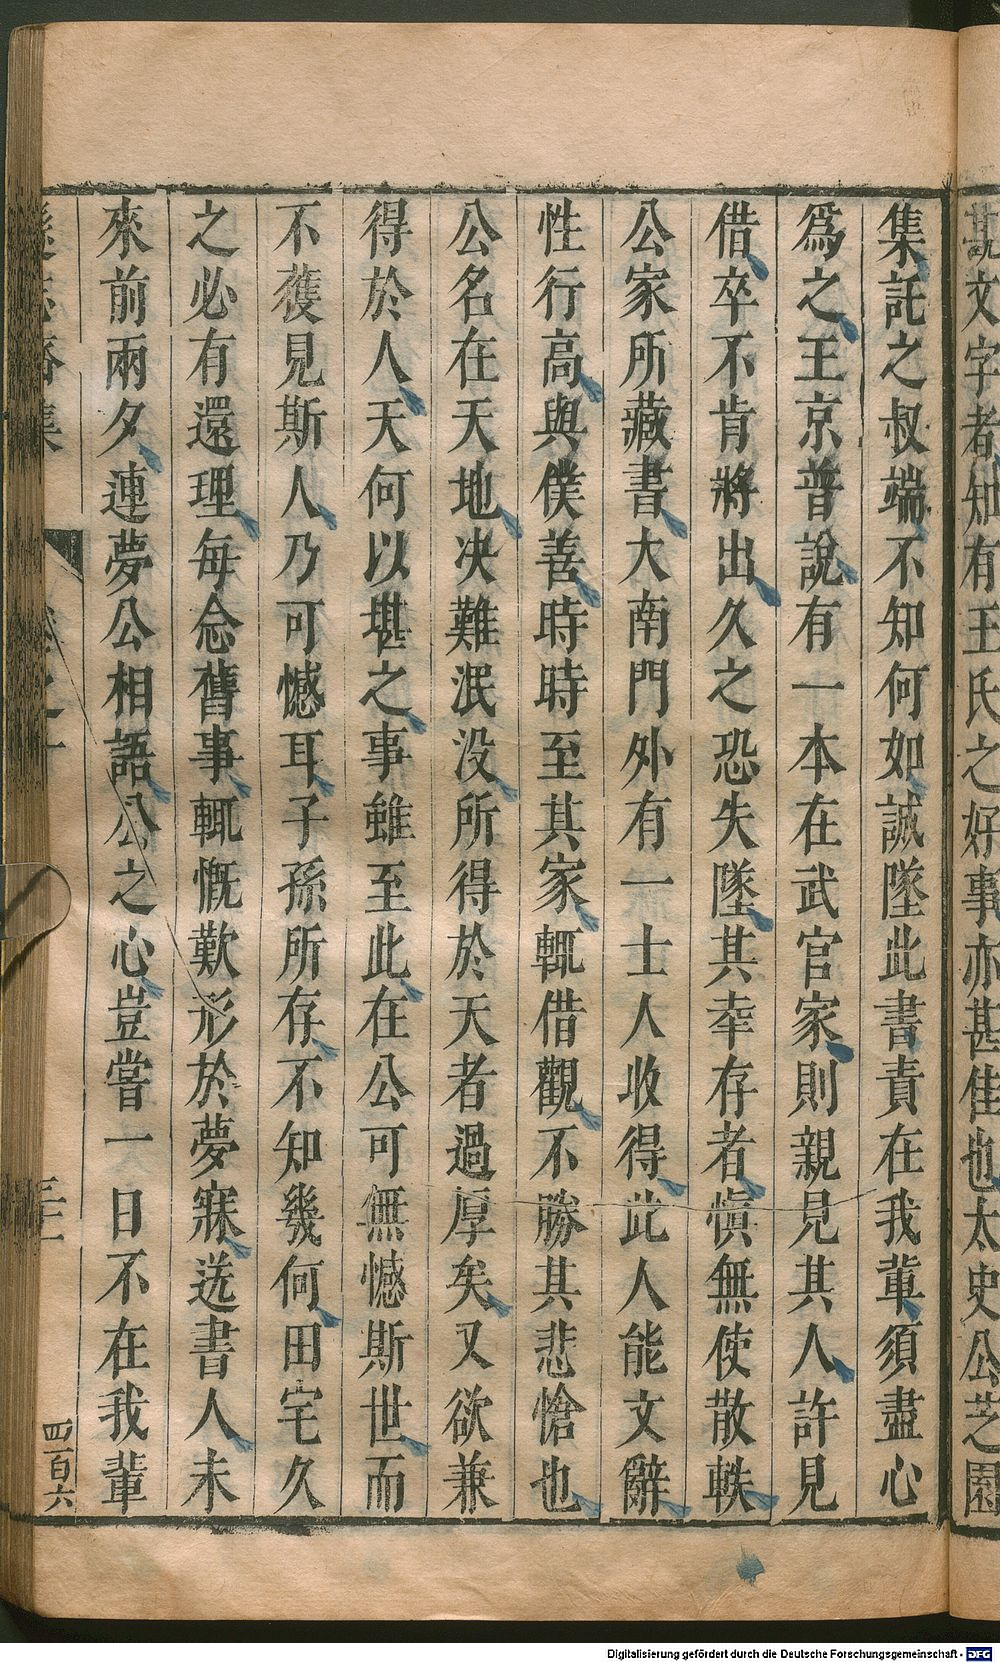 文字者知有王氏之好事亦甚佳也太史公芝園
集託之叔端不知何如誠墜此書責在我輩須盡心
爲之王京普說有一本在武官家則親見其人許見
借卒不肯將出久之恐失墜其幸存者愼無使散軼
公家所藏書大南門外有一士人收得此人能文辭
性行高與僕善時時至其家輒借觀不勝其悲愴也
公名在天地决難泯没所得於天者過厚矣又欲兼
得於人天何以堪之事雖至此在公可無憾斯世而
不獲見斯人乃可憾耳子孫所存不知幾何田宅久
之必有還理每念舊事輒慨歎形於夢寐送書人未
來前兩夕連夢公相語公之心豈嘗一日不在我輩
遜志齋集
卷之十
三十一
四百六
Digitalisierung gefördert durch die Deutsche Forschungsgemeinschaft - DFG